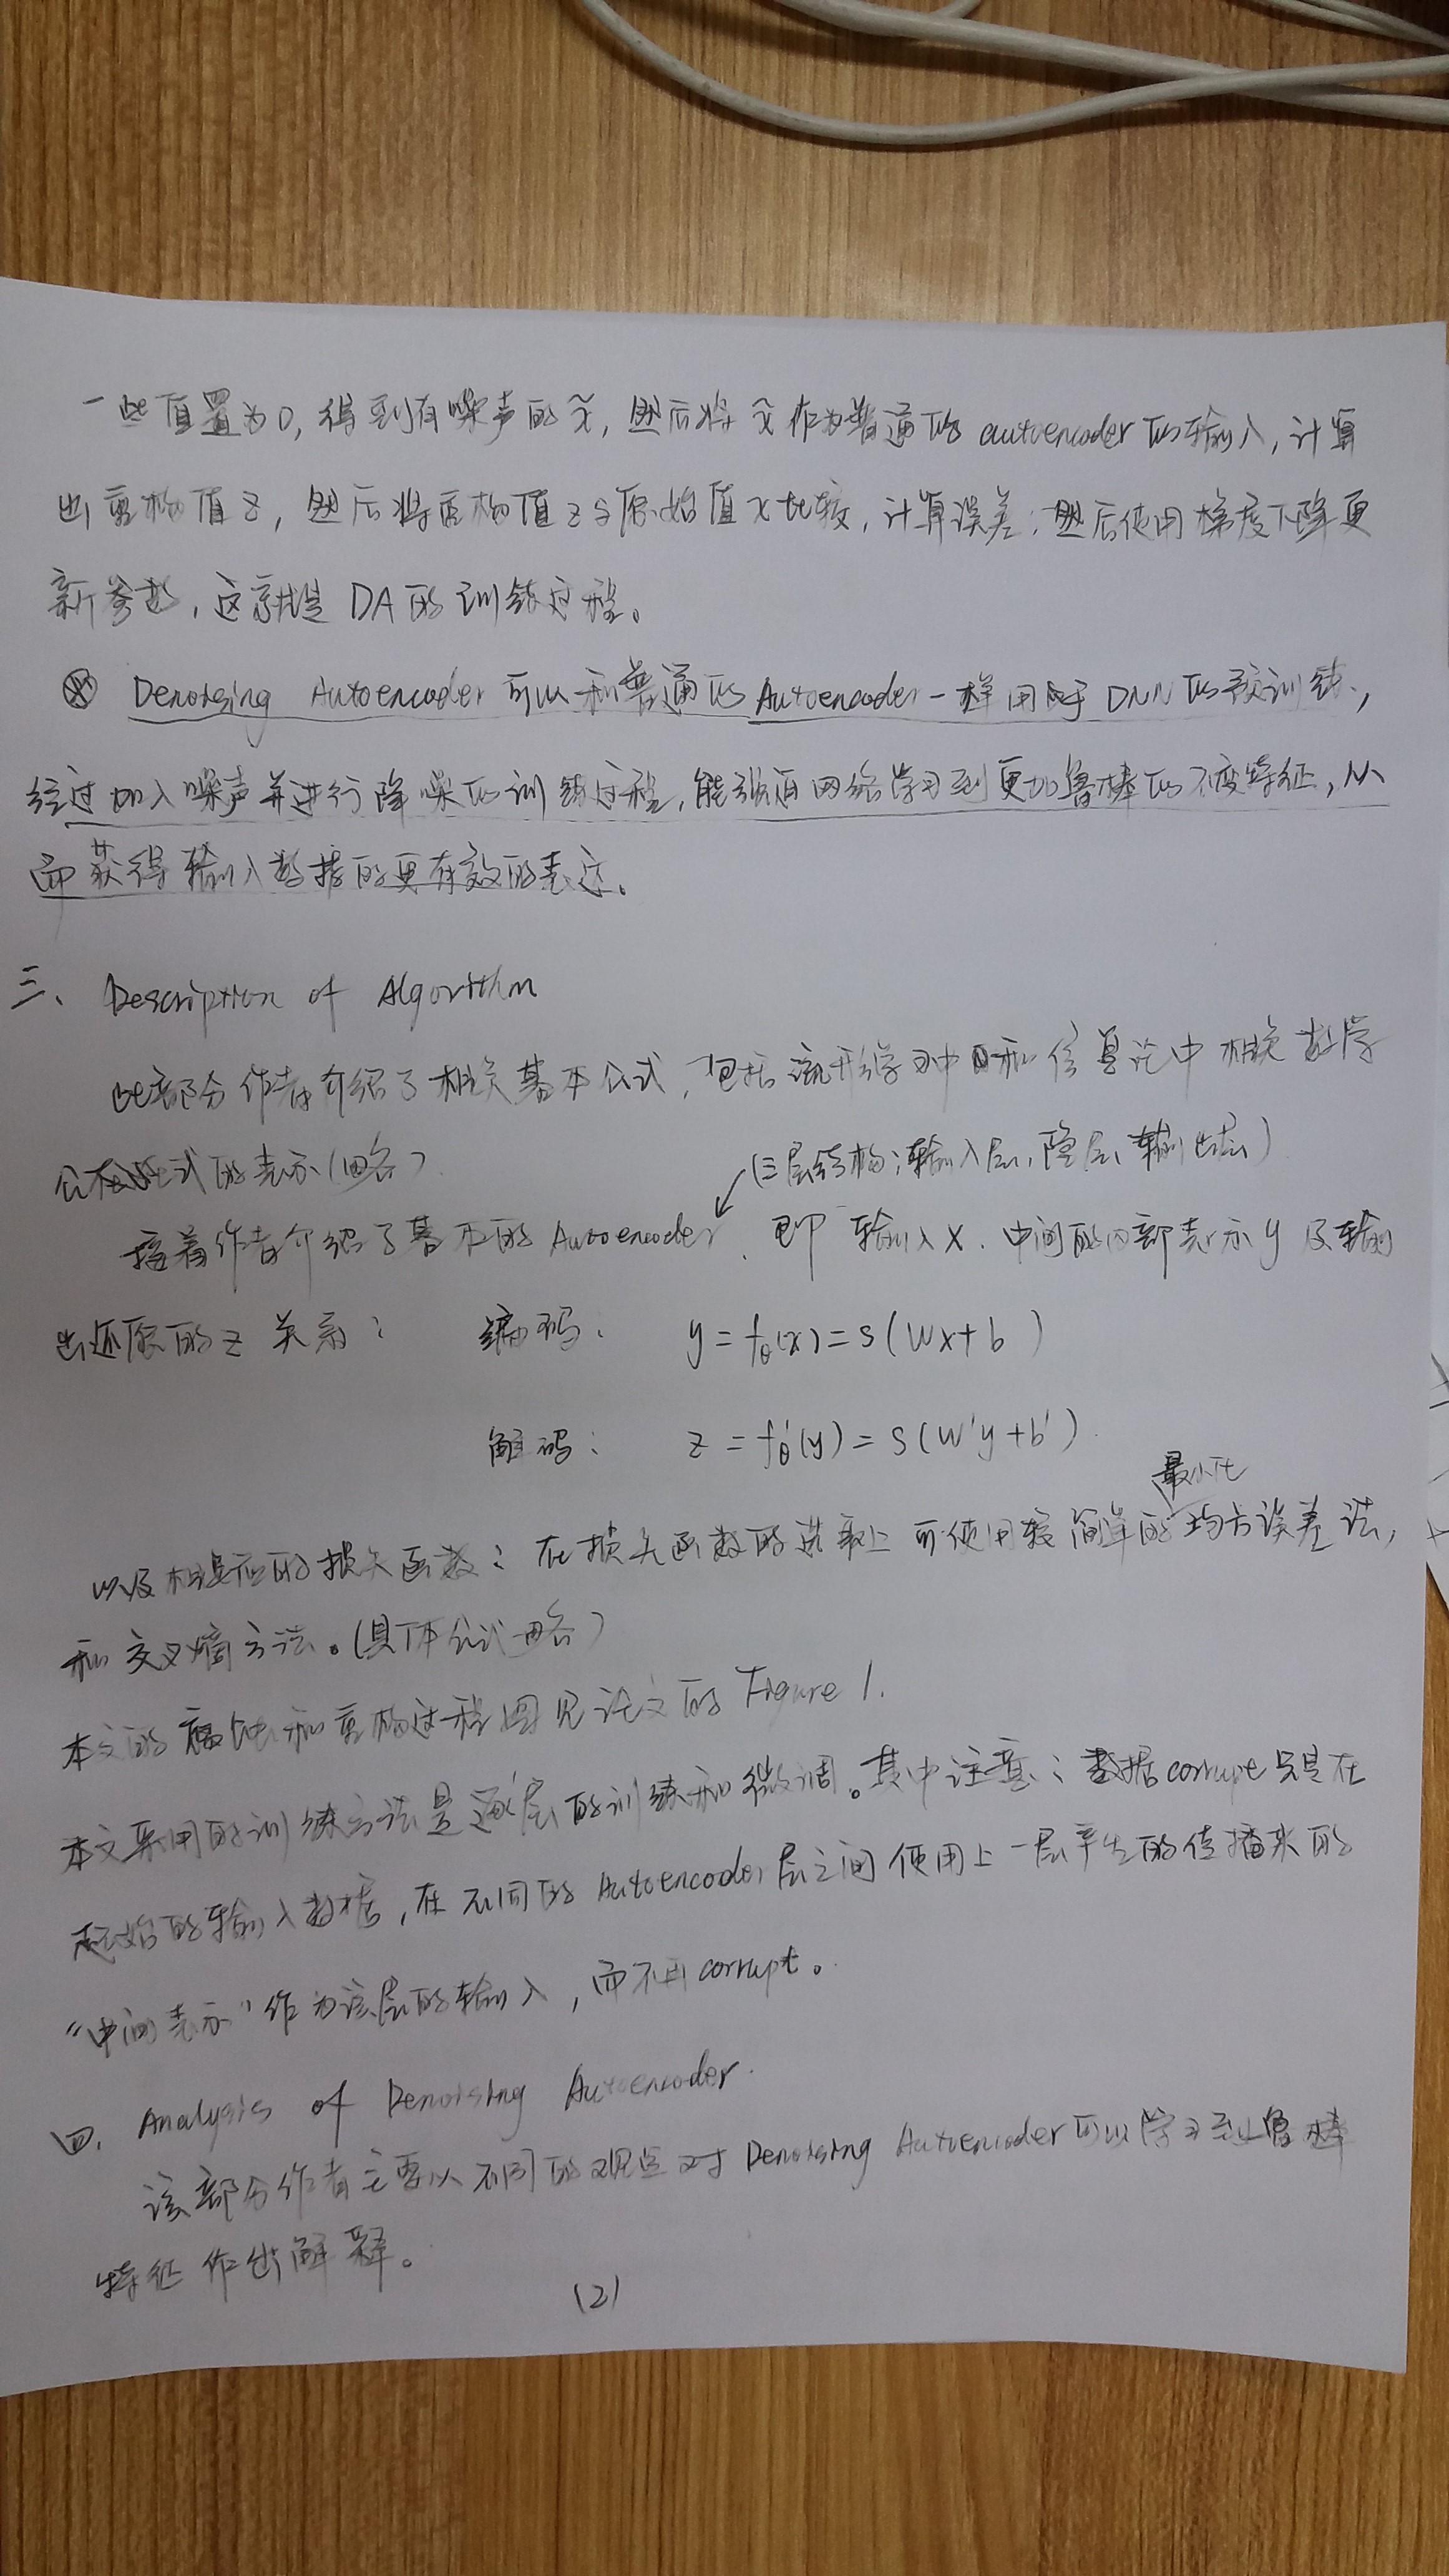 一些值置为0,得到有噪声的x̃,然后将x̃作为普通的autoencoder的输入,计算
出重构值z,然后将重构值z与原始值x比较,计算误差,然后使用梯度下降更
新参数,这就是DA的训练过程。
⊗ Denoising Autoencoder可以和普通的Autoencoder一样用于DNN的预训练,
经过加入噪声并进行降噪的训练过程,能强迫网络学习到更加鲁棒的不变特征,从
而获得输入数据的更有效的表达。
三、Description of Algorithm
此部分作者介绍了相关基本公式,包括流形学习中和信息论中相关数学
公式的表示(略)
(三层结构:输入层,隐层,输出层)
接着作者介绍了基本的Autoencoder,即输入x、中间的内部表示y及输
出还原的z关系: 编码: y=fθ(x)=s(Wx+b)
解码: z=fθ'(y)=s(W'y+b')
最小化
以及相误应的损失函数:在损失函数的选取上可使用较简单的均方误差法,
和交叉熵方法。(具体公式略)
本文的腐蚀和重构过程图见论文的Figure 1.
本文采用的训练方法是逐层的训练和微调。其中注意:数据corrupt只是在
起始的输入数据,在不同的Autoencoder层之间使用上一层产生的传播来的
"中间表示"作为该层的输入,而不再corrupt。
四、Analysis of Denoising Autoencoder.
该部分作者主要从不同的观点对Denoising Autoencoder可以学习到鲁棒
特征作出解释。
(2)